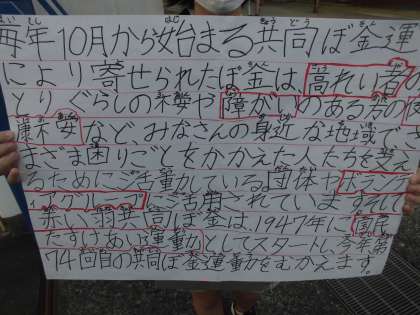 毎年10月から始まる共同ぼ金運
により寄せられたぼ金は、高れい者の
とりぐらしの不安や障がいのある方の
など、みなさんの身近な地域で
まざま困りごとをかかえた人たちを支え
るためにご活動している団体やボランテ
ィアグループ
に活用されています。そして
赤い羽共同ぼ金は、1947年に国民
たすけあい運動としてスタートし今年第
74回目の共同ぼ金運動をむかえます。